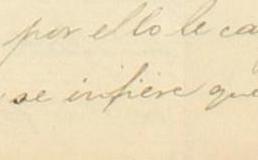 por ello le ca
se infiere que